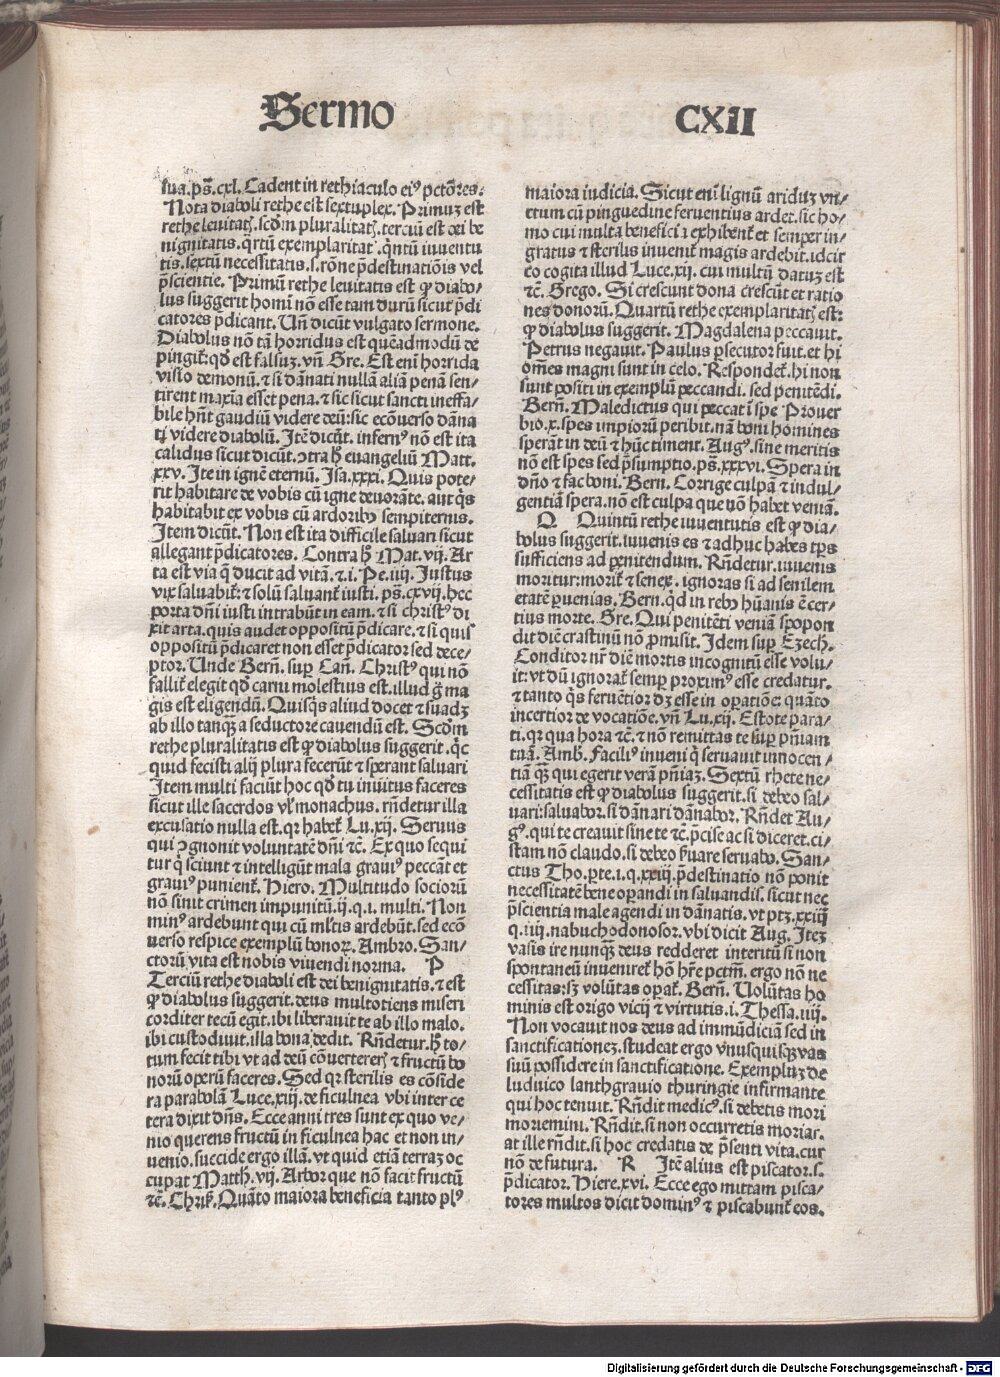 Sermo CXII
sua.ps̄.cxl. Cadent in rethiaculo eiꝰ pctōres.
Nota diaboli rethe est sextuplex. Primuz est
rethe leuitatꝭ. scd̄m pluralitatꝭ. terciū est dei be
nignitatis. q̄rtū exemplaritatꝭ. qntū iuuentu
tis. sextū necessitatis. s. rōne p̄destinatiōis vel
p̄scientie. Primū rethe leuitatis est ꝙ diabo⸗
lus suggerit homī nō esse tam durū sicut p̄di
catores p̄dicant. Un̄ dicūt vulgato sermone.
Diabolus nō tā horridus est quēadmodū de
pingiť: qd̓ est falsuz. vn̄ Gre. Est enī horrida
visio demonū. ⁊ si dānati nullā aliā penā sen⸗
tirent maxīa esset pena. ⁊ sic sicut sancti ineffa⸗
bile hn̄t gaudiū videre deū: sic ecōuerso dāna
ti videre diabolū. Itē dicūt. infernꝰ nō est ita
calidus sicut dicūt. ꝯtra h̄ euangeliū Matt.
xxv. Ite in ignē eternū. Isa.xxxi. Quis pote⸗
rit habitare de vobis cū igne deuorāte. aut q̄s
habitabit ex vobis cū ardoribꝰ sempiternis.
Item dicūt. Non est ita difficile saluari sicut
allegant p̄dicatores. Contra h̄ Mat. vij. Ar
ta est via q̄ ducit ad vitā. ⁊.i. Pe.iiij. Justus
vix saluabiť: ⁊ solū saluanť iusti. ps̄.cxvij. hec
porta dn̄i iusti intrabūt in eam. ⁊ si christꝰ di
xit arta. quis audet oppositū p̄dicare. ⁊ si quis
oppositū p̄dicaret non esset p̄dicator sed dece⸗
ptor. Unde Bern̄. suꝑ Can̄. Christꝰ qui nō
falliť elegit qd̓ carni molestius est. illud g̊ ma
gis est eligendū. Quisq̄s aliud docet ⁊ suadz
ab illo tanq̄ꝫ a seductore cauendū est. Scd̄m
rethe pluralitatis est ꝙ diabolus suggerit. qc̄
quid fecisti alij plura fecerūt ⁊ sperant saluari
Item multi faciūt hoc qd̓ tu inuitus faceres
sicut ille sacerdos vł monachus. rn̄detur illa
excusatio nulla est. qꝛ habeť Lu.xij. Seruus
qui ꝯgnouit voluntatē dn̄i ⁊c. Ex quo sequi
tur q̄ sciunt ⁊ intelligūt mala grauiꝰ peccāt et
grauiꝰ punienť. Hiero. Multitudo sociorū
nō sinit crimen impunitū. ij. q. i. multi. Non
minꝰ ardebunt qui cū ml̓tis ardebūt. sed ecō
uerso respice exemplū bonoꝝ. Ambro. San⸗
ctorū vita est nobis viuendi norma. P
Terciū rethe diaboli est dei benignitatis. ⁊ est
ꝙ diabolus suggerit. deus multotiens miseri
corditer tecū egit. ibi liberauit te ab illo malo.
ibi custodiuit. illa bona dedit. Rn̄detur. h̄ to⸗
tum fecit tibi vt ad deū cōuertererꝭ ⁊ fructū bo
norū operū faceres. Sed qꝛ sterilis es cōside
ra parabolā Luce.xiij. de ficulnea vbi inter ce
tera dixit dn̄s. Ecce anni tres sunt ex quo ve⸗
nio querens fructū in ficulnea hac et non in⸗
uenio. succide ergo illā. vt quid etiā terraz oc
cupat Matth. vij. Arbor que nō facit fructū
⁊c̄. Chriſ. Quāto maiora beneficia tanto plꝰ
maiora iudicia. Sicut enī lignū ariduz vn⸗
ctum cū pinguedine feruentius ardet. sic ho⸗
mo cui multa beneficia exhibenť et semper in⸗
gratus ⁊ sterilis inueniť magis ardebit. idcir
co cogita illud Luce.xij. cui multū datuz est
⁊c̄. Grego. Si crescunt dona crescūt et ratio
nes donorū. Quartū rethe exemplaritatꝭ est:
ꝙ diabolus suggerit. Magdalena peccauit.
Petrus negauit. Paulus ꝑsecutor fuit. et hi
om̄es magni sunt in celo. Respondeť. hi non
sunt positi in exemplū peccandi. sed penitēdi.
Bern̄. Maledictus qui peccat ī spe Prouer
bio.x. spes impiorū peribit. nā boni homines
sperāt in deū ⁊ hūc timent. Augꝰ. sine meritis
nō est spes sed p̄sumptio. ps̄.xxxvi. Spera in
dn̄o ⁊ fac boni. Bern. Corrige culpā ⁊ indul⸗
gentiā spera. nō est culpa que nō habet veniā.
Q Quintū rethe iuuentutis est ꝙ dia⸗
bolus suggerit. iuuenis es ⁊ adhuc habes tp̄s
sufficiens ad penitendum. Rn̄detur. iuuenis
moritur: moriť ⁊ senex. ignoras si ad senilem
etatē ꝑuenias. Bern. qd̓ in rebꝰ hūanis ē cer⸗
tius morte. Gre. Qui penitēti veniā spopon
dit diē crastinū nō ꝓmisit. Idem suꝑ Ezech.
Conditor nr̄ diē mortis incognitū esse volu⸗
it: vt dū ignorať semꝑ proximꝰ esse credatur.
⁊ tanto q̄s feruētior dz esse in oꝑatiōe: quāto
incertior de vocatiōe. vn̄ Lu.xij. Estote para⸗
ti. qꝛ qua hora ⁊c̄. ⁊ nō remittas te suꝑ pn̄iam
tuā. Amb. Faciliꝰ inueni q̄ seruauit innocen⸗
tiā q̄ꝫ qui egerit verā pn̄iaz. Sextū rhete ne⸗
cessitatis est ꝙ diabolus suggerit. si debeo sal⸗
uari: saluabor. si dānari dānabor. Rn̄det Au⸗
gꝰ. qui te creauit sine te ⁊c̄. p̄cise ac si diceret. ci⸗
stam nō claudo. si debeo ẜuare seruabo. San⸗
ctus Tho. ꝑte.i.q.xxiij. p̄destinatio nō ponit
necessitatē bene oꝑandi in saluandis. sicut nec
p̄scientia male agendi in dānatis. vt ptꝫ.xxiij
q.iiij. nabuchodonosor. vbi dicit Aug. Itez
vasis ire nunq̄ꝫ deus redderet interitū si non
spontaneū inuenireť hō hr̄e pctm̄. ergo nō ne
cessitas: sꝫ volūtas oꝑať. Bern̄. Volūtas ho
minis est origo vicij ⁊ virtutis. i. Thessa.iiij.
Non vocauit nos deus ad immūdiciā sed in
sanctificationez. studeat ergo vnusquisqꝫ vas
suū possidere in sanctificatione. Exempluz de
luduico lanthgrauio thuringie infirmante
qui hoc tenuit. Rn̄dit medicꝰ. si debetis mori
moriemini. Rn̄dit. si non occurretis moriar.
at ille rn̄dit. si hoc credatis de p̄senti vita. cur
nō de futura. R Itē alius est piscator. s.
p̄dicator. Hiere.xvi. Ecce ego mittam pisca⸗
tores multos dicit dominꝰ ⁊ piscabunť eos.
Digitalisierung gefördert durch die Deutsche Forschungsgemeinschaft - DFG